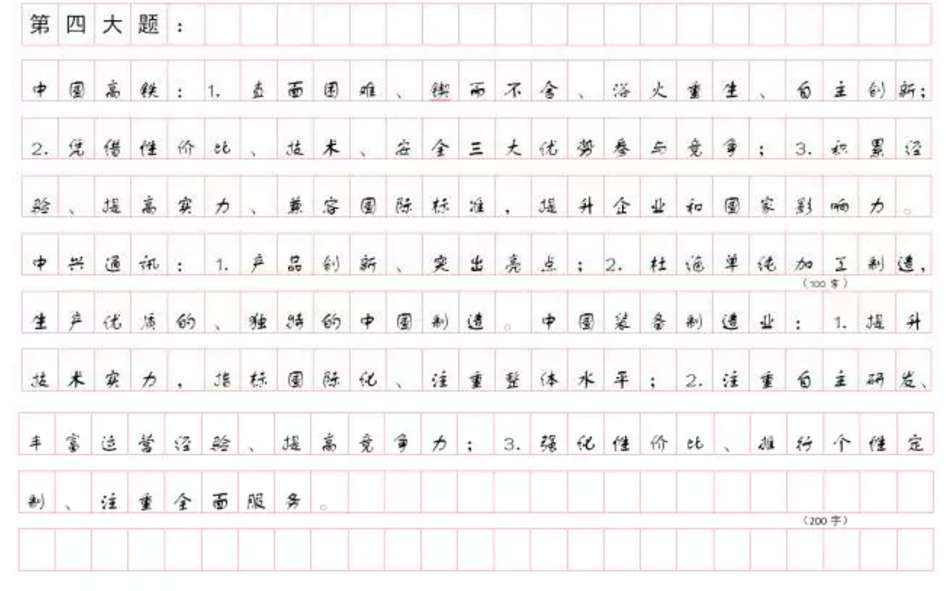 第四大题：
中国高铁：1.直面困难、锲而不舍、浴火重生、自主创新；
2.凭借性价比、技术、安全三大优势参与竞争；3.积累经
验、提高实力、兼容国际标准，提升企业和国家影响力。
中兴通讯：1.产品创新、突出亮点；2.杜绝单纯加工制造，
（100字）
生产优质的、独特的中国制造。中国装备制造业：1.提升
技术实力，指标国际化、注重整体水平；2.注重自主研发、
丰富运营经验、提高竞争力；3.强化性价比、推行个性定
制、注重全面服务。
（200字）